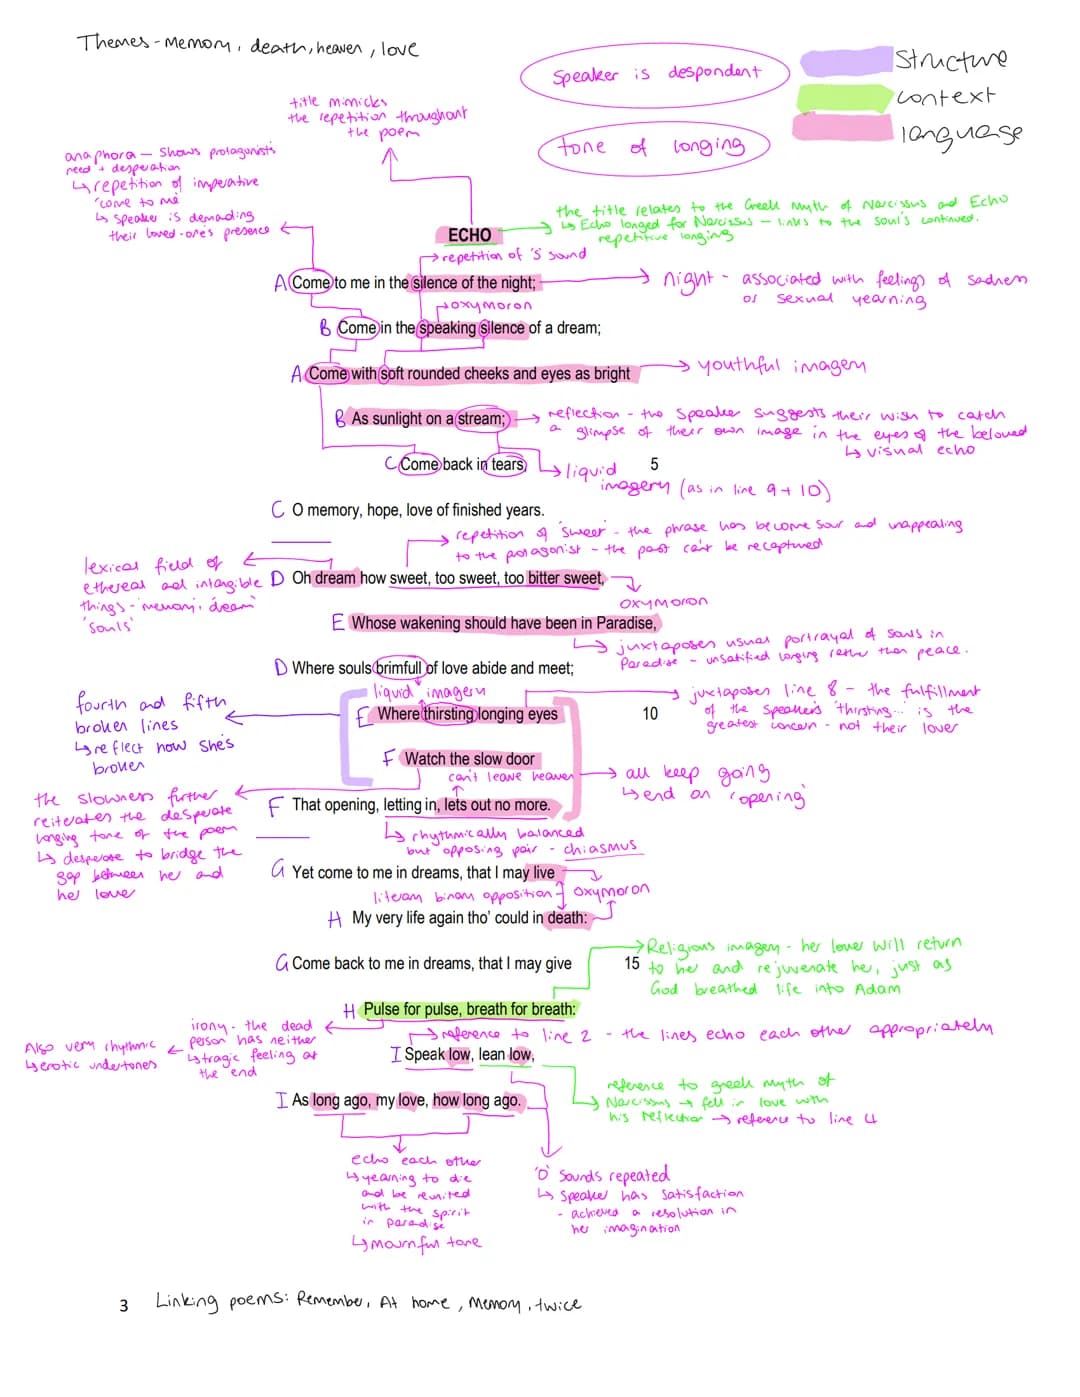 Themes - memory, death, heaven, love
Speaker is despondent
structure
context
language
tone of longing
title mimicks
the repetition throughout
the poem
anaphora - shows protagonists
need + desperation
↳ repetition of imperative
'come to me'
↳ speaker is demanding
their loved-one's presence
the title relates to the Greek myth of Narcissus and Echo
↳ Echo longed for Narcissus - links to the soul's continued,
repetitive longing
ECHO
→ repetition of 's' sound
A Come to me in the silence of the night;
night - associated with feelings of sadness
or sexual yearning
oxymoron
B Come in the speaking silence of a dream;
A Come with soft rounded cheeks and eyes as bright
youthful imagery
B As sunlight on a stream;
reflection - the speaker suggests their wish to catch
a glimpse of their own image in the eyes of the beloved
↳ visual echo
C Come back in tears, 5
liquid
imagery (as in line 9 + 10)
C O memory, hope, love of finished years.
repetition of 'sweet' - the phrase has become sour and unappealing
to the protagonist - the past can't be recaptured
lexical field of
ethereal and intangible
things - 'memory, dream'
'souls'
D Oh dream how sweet, too sweet, too bitter sweet,
oxymoron
E Whose wakening should have been in Paradise,
juxtaposes usual portrayal of souls in
Paradise - unsatified longing rather than peace.
D Where souls brimfull of love abide and meet;
liquid imagery
fourth and fifth
broken lines
↳ reflect how she's
broken
E Where thirsting longing eyes 10
juxtaposes line 8 - the fulfillment
of the speaker's 'thirsting...' is the
greatest concern - not their lover
F Watch the slow door
can't leave heaven
all keep going
↳ end on 'opening'
the slowness further
reiterates the desperate
longing tone of the poem
↳ desperate to bridge the
gap between her and
her love
F That opening, letting in, lets out no more.
↳ rhythmically balanced
but opposing pair - chiasmus
G Yet come to me in dreams, that I may live
literary binary opposition
oxymoron
H My very life again tho' could in death:
G Come back to me in dreams, that I may give 15
Religious imagery - her lover will return
to her and rejuvenate her, just as
God breathed life into Adam
H Pulse for pulse, breath for breath:
irony - the dead
person has neither
↳ tragic feeling at
the end
Also very rhythmic
↳ erotic undertones
reference to line 2 - the lines echo each other appropriately
I Speak low, lean low,
reference to greek myth of
Narcissus → fell in love with
his reflection → reference to line 4
I As long ago, my love, how long ago.
echo each other
↳ yearning to die
and be reunited
with the spirit
in paradise
↳ mournful tone
'O' sounds repeated
↳ speaker has satisfaction
- achieved a resolution in
her imagination
3 Linking poems: Remember, At home, Memory, twice